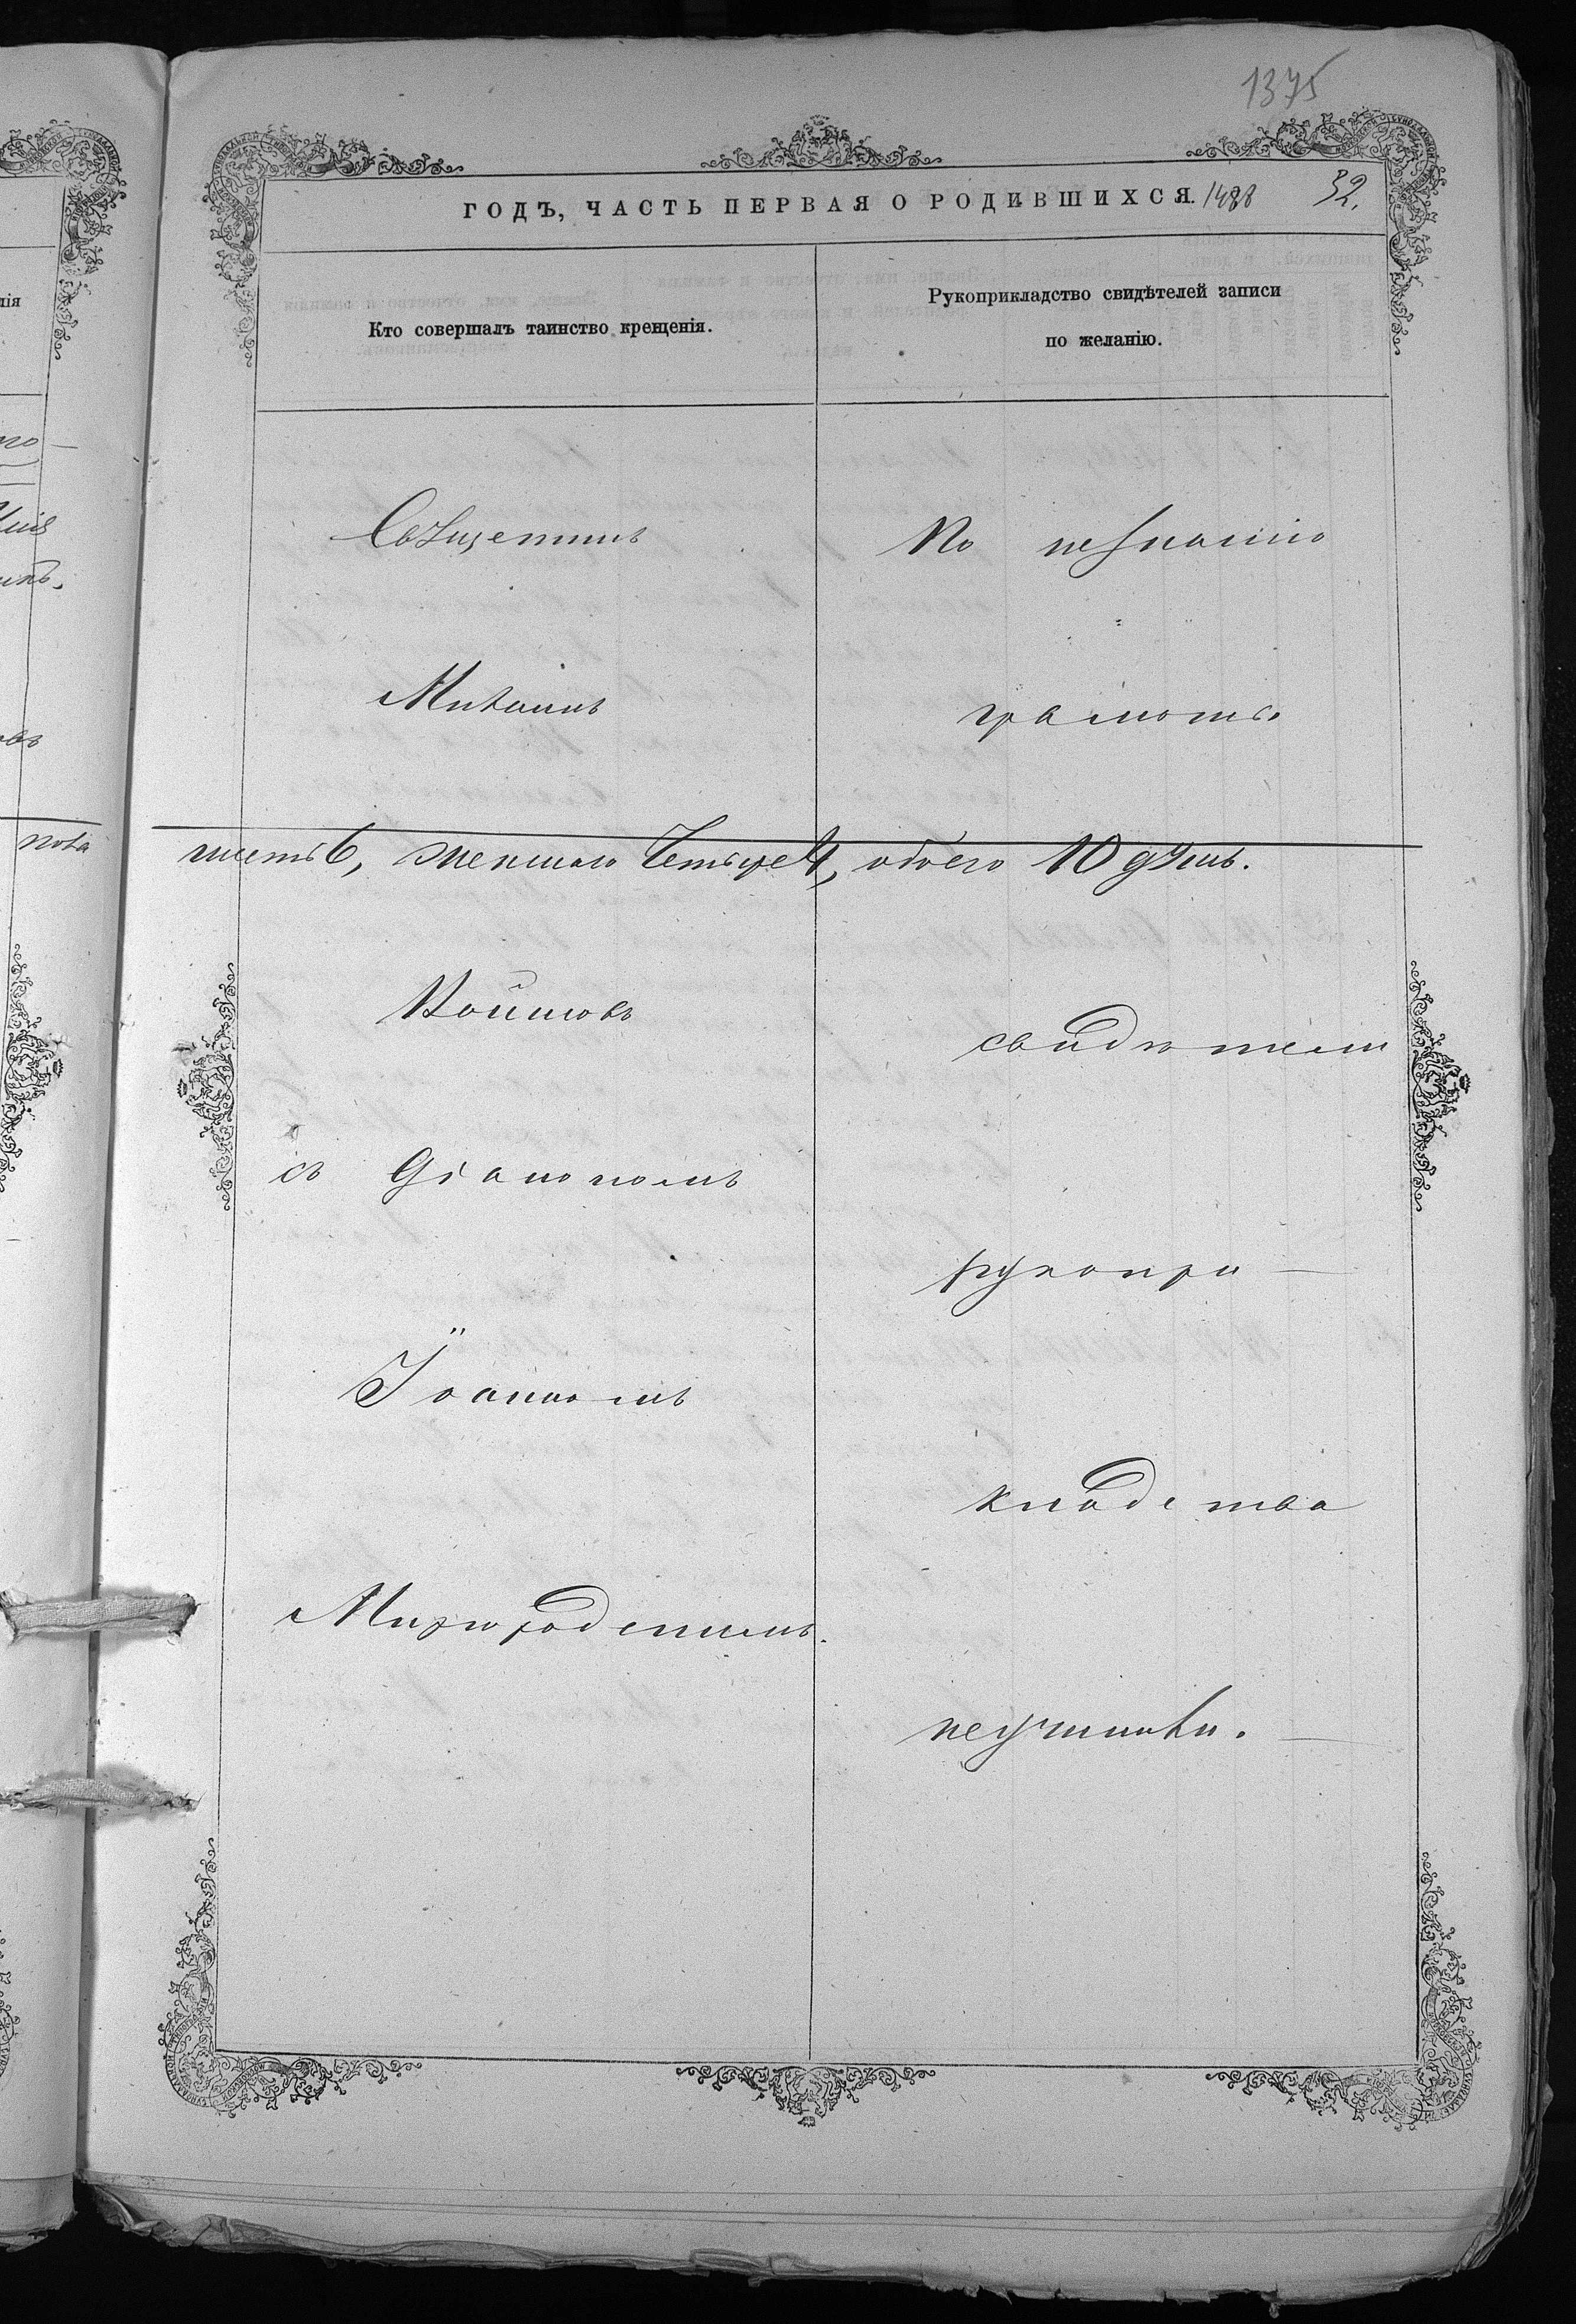 1375
ГОДЪ, ЧАСТЬ ПЕРВАЯ О РОДИВШИХСЯ. 32.
Кто совершалъ таинство крещенія.
Рукоприкладство свидѣтелей записи
по желанію.
Священникъ
Михаилъ
По незнанію
грамоты
шесть 6, женскаго Четыре 4, обоего 10 душъ.
Войновъ
съ Діакономъ
Іоанномъ
свидѣтели
рукопри-
кладства
неучинили.